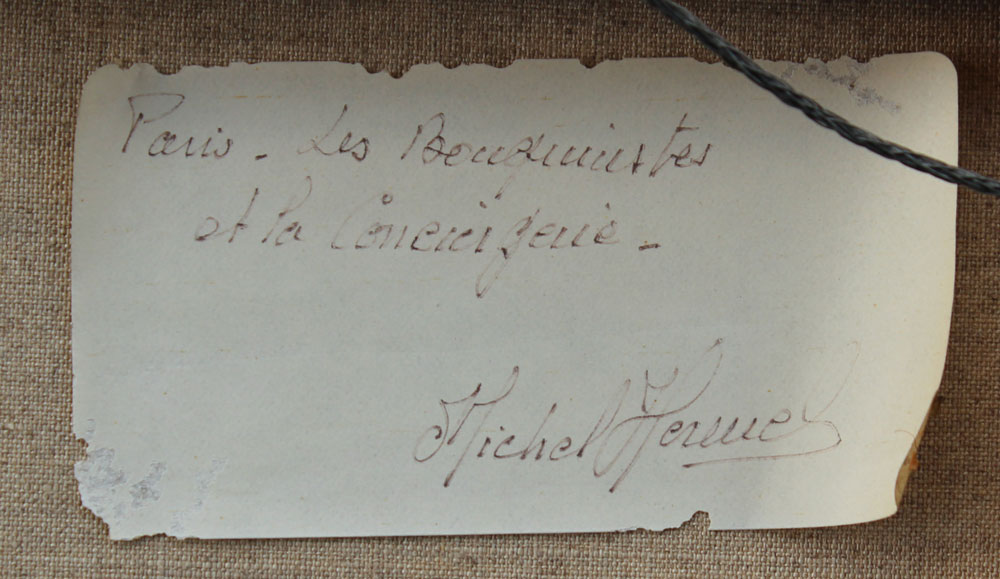 Paris - Les Bouquinistes
et la Conciergerie -
Michel